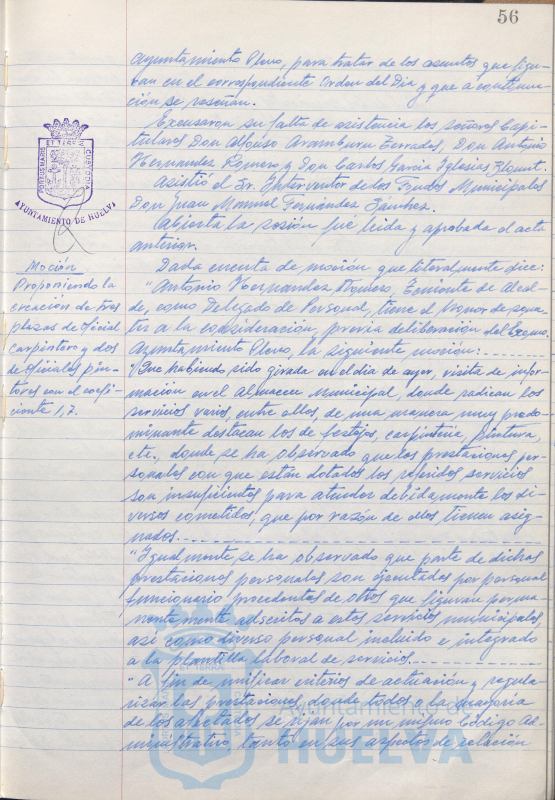 56
Ayuntamiento Pleno, para tratar de los asuntos que figu-
ran en el correspondiente Orden del Dia y que a continua-
ción se reseñan.
Excusaron su falta de asistencia los señores Capi-
tulares Don Alfonso Aramburu Terrades, Don Antonio
Hernandez Romero y Don Carlos Garcia Iglesias Blount.
Asistió el Sr. Interventor de los Fondos Municipales
Don Juan Manuel Fernández Sánchez.
Abierta la sesión fué leida y aprobada el acta
anterior.
PORTUS MARIS ET TERRE CUSTODIA
AYUNTAMIENTO DE HUELVA
Moción
Proponiendo la
creación de tres
plazas de Oficial
carpintero y dos
de Oficiales pin-
tores con el coefi-
ciente 1,7.
Dada cuenta de moción que literalmente dice:
"Antonio Hernandez Romero, Teniente de Alcal-
de, como Delegado de Personal, tiene el honor de eeva-
ler a la consideración, previa deliberación del Excmo.
Ayuntamiento Pleno, la siguiente moción:
"Que habiendo sido girada en el dia de ayer, visita de infor-
mación en el Almacen Municipal, donde radican los
servicios varios, entre ellos, de una manera muy predo-
minante destacan los de festejos, carpinteria, pintura,
etc., donde se ha observado que las prestaciones per-
sonales con que están dotados los referidos servicios
son insuficientes para atender debidamente los di-
versos cometidos, que por razón de ellos tienen asig-
nados.
"Igualmente se ha observado que parte de dichas
prestaciones personales son ejecutadas por personal
funcionario procedentes de otros que figuran perma-
nentemente adscritos a estos servicios municipales,
así como diverso personal incluido e integrado
a la plantilla laboral de servicios.
"A fin de unificar criterios de actuación y regula-
rizar las prestaciones, donde todos o la mayoría
de los afectados se rijan por un mismo Código Ad-
ministrativo, tanto en sus aspectos de relación
Ayuntamiento de
HUELVA